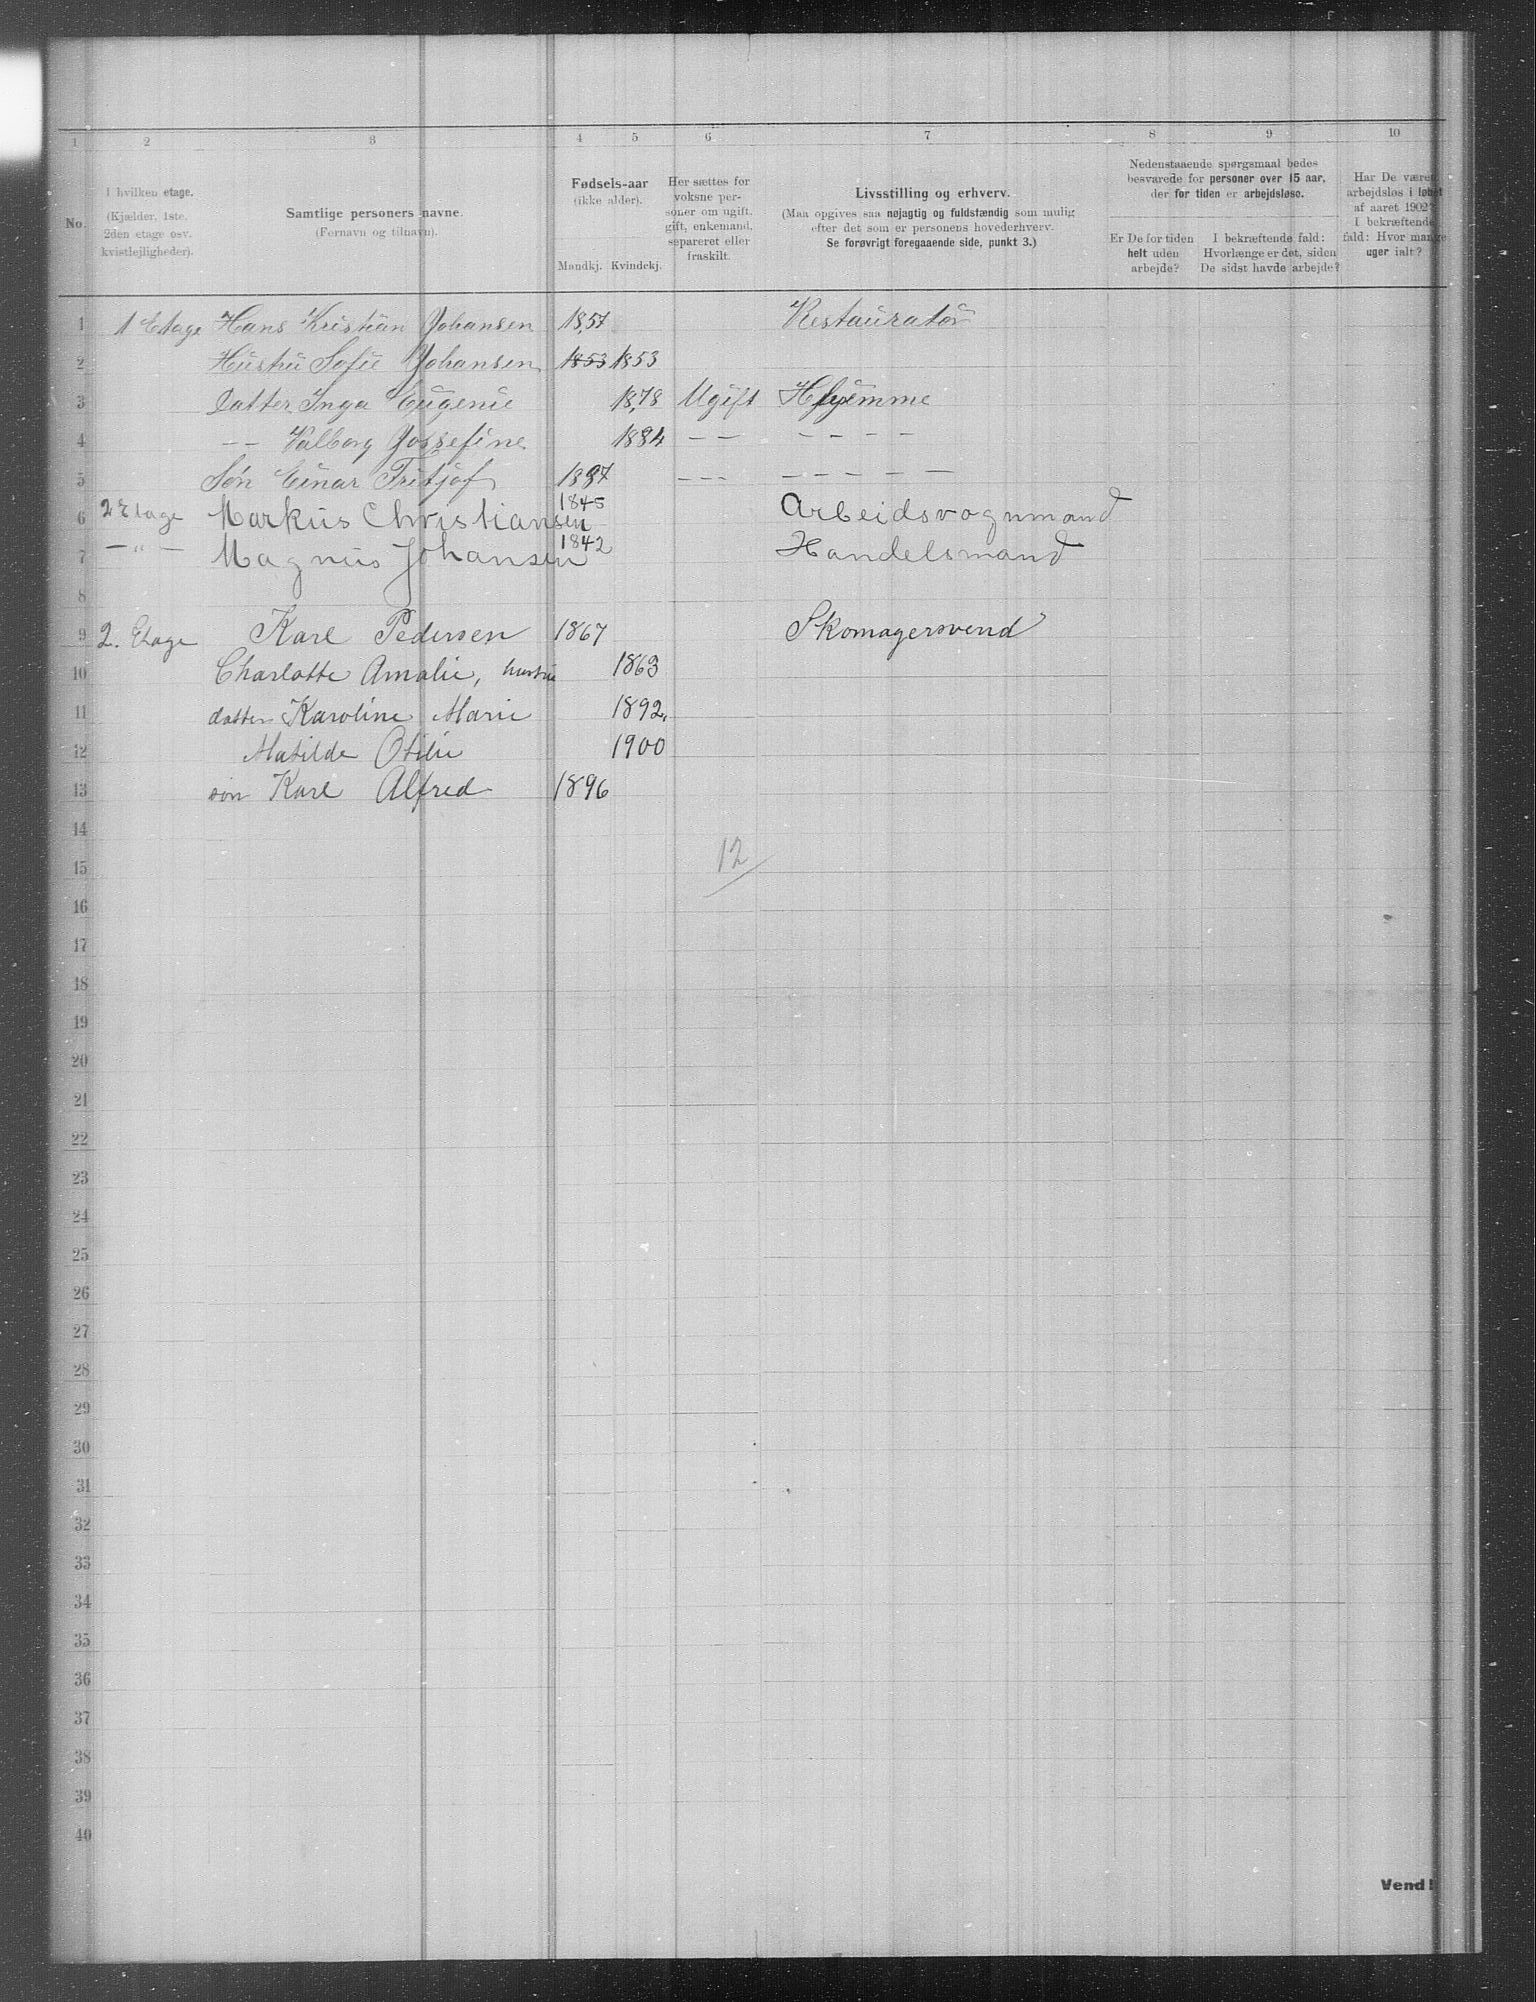 1 2 3 4 5 6 7 8 9 10
No.
I hvilken etage.
(Kjælder, 1ste.
2den etage osv.
kvistlejligheder).
Samtlige personers navne.
(Fornavn og tilnavn).
Fødsels-aar
(ikke alder).
Mandkj. Kvindekj.
Her sættes for
voksne per-
soner om ugift,
gift, enkemand,
separeret eller
fraskilt.
Livsstilling og erhverv.
(Maa opgives saa nøjagtig og fuldstændig som mulig
efter det som er personens hovederhverv.
Se forøvrigt foregaaende side, punkt 3.)
Nedenstaaende spørgsmaal bedes
besvarede for personer over 15 aar,
der for tiden er arbejdsløse.
Er De for tiden
helt uden
arbejde?
I bekræftende fald:
Hvorlænge er det, siden
De sidst havde arbejde?
Har De været
arbejdsløs i løbet
af aaret 1902?
I bekræftende
fald: Hvor mange
uger ialt?
1 1 Etage Hans Kristian Johansen 1857 Restauratør
2 Hustru Sofie Johansen 1853 1853
3 Datter Inga Eugenie 1878 Ugift Hjemme
4 -- Valborg Jossefine 1884 -- ----
5 Søn Einar Fritjof 1897 --- -----
6 2 Etage Markus Christiansen 1845 Arbeidsvognmand
7 — " — Magnus Johansen 1842 Handelsmand
8
9 2. Etage Karl Pedersen 1867 Skomagersvend
10 Charlotte Amalie, hustru 1863
11 datter Karoline Marie 1892.
12 Matilde Otilie 1900
13 søn Karl Alfred 1896
14
15 12
16
17
18
19
20
21
22
23
24
25
26
27
28
29
30
31
32
33
34
35
36
37
38
39
40
Vend!